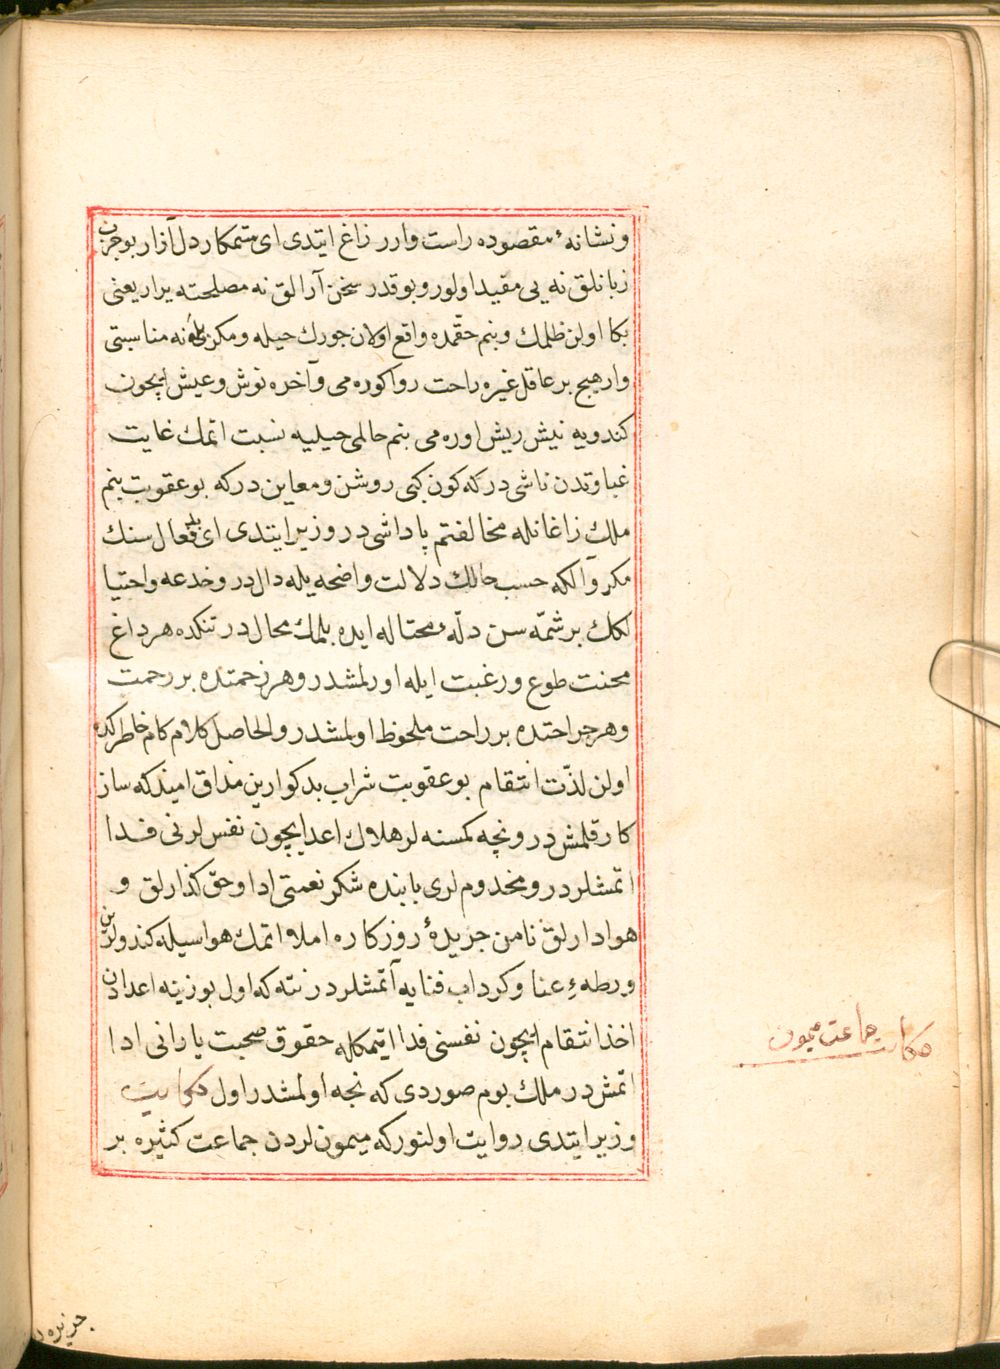 ونشانهٔ مقصوده راست وارر زاغ ایتدی ای ستمکار دل آزار بو چرب
زبانلق نه یی مفید اولور و بو قدر سخن آرالق نه مصلحته یرار یعنی
بکا اولن ظلمك وبنم حقّمده واقع اولان جورك حیله ومکر ایله نه مناسبتی
وار هیچ بر عاقل غیره راحت روا کوره می وآخره نوش وعیش ایچون
کندویه نیش ریش اوره می بنم حالمی حیلیه نسبت اتمك غایت
غباوتدن ناشی در که کون کبی روشن ومعاین در که بو عقوبت بنم
ملك زاغانله مخالفتم پاداشی در وزیر ایتدی ای بد فعال سنك
مکر وآلکه حسب حالك دلالت واضحه یله دال در وخدعه واحتیا
لكك بر شمّه سن دلّهٔ محتاله ایده بلمك محال در تنکده هر داغ
محنت طوع ورغبت ایله اورلمشدر وهر زحمتده بر رحمت
وهر جراحتده بر راحت ملحوظ اولمشدر والحاصل کلام کام خاطرکده
اولن لذّت انتقام بو عقوبت شراب بدکوارین مذاق امیدکه ساز
کار قلمش در ونچه کمسنه لر هلاك اعدا ایچون نفس لرنی فدا
اتمشلردر ومخدوم لری بابنده شکر نعمتی ادا وحق کذارلق و
هوادارلق نامن جریدهٔ روزکاره املاء اتمك هواسیله کندولرین
ورطهٔ عنا وکرداب فنایه آتمشلردر نته که اول بوزینه اعدادن
اخذ انتقام ایچون نفسنی فدا ایتمکله حقوق صحبت یارانی ادا
اتمش در ملك بوم صوردی که نجه اولمشدر اول حکایت
وزیر ایتدی روایت اولنور که میمون لردن جماعت کثیره بر
حکایت جماعت میمون
جزیره